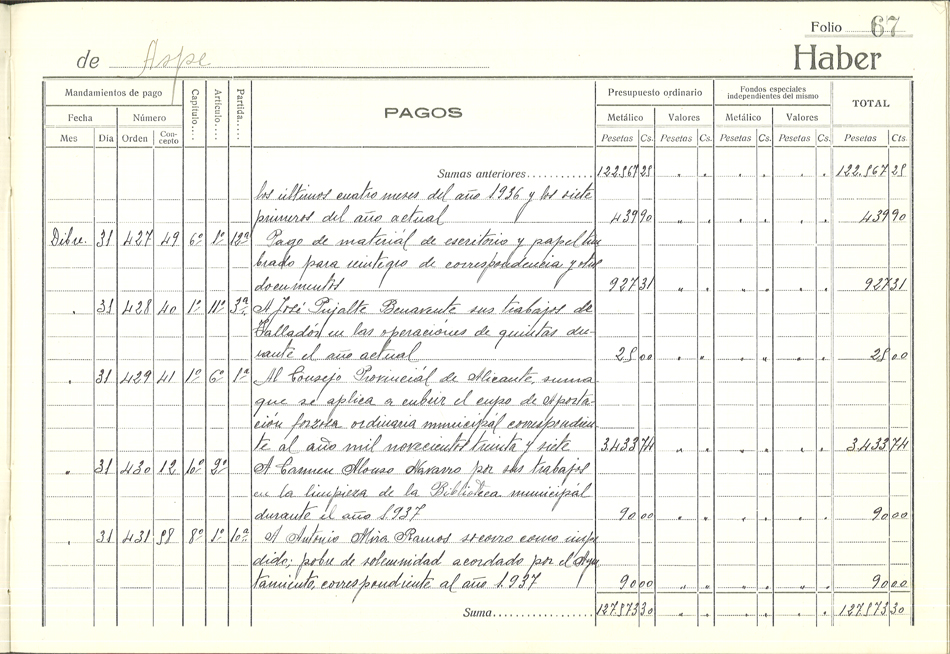 Folio 67
de Aspe Haber
Mandamientos de pago Capítulo.... Artículo.... Partida.... PAGOS Presupuesto ordinario Fondos especiales independientes del mismo TOTAL
Fecha Número Metálico Valores Metálico Valores
Mes Día Orden Concepto Pesetas Cs. Pesetas Cs. Pesetas Cs. Pesetas Cs. Pesetas Cts.
Sumas anteriores
los últimos cuatro meses del año 1936 y los siete
primeros del año actual 439 90 439 90
Dibre. 31 427 49 6º 1º 12ª Pago de material de escritorio y papel tim
brado para reintegro de correspondencia y otros
documentos 927 31 927 31
" 31 428 40 1º 11º 3ª A José Pujalte Benavente sus trabajos de
Tallador en las operaciones de quintas du-
rante el año actual 25 00 25 00
" 31 429 41 1º 6º 1ª Al Consejo Provinciál de Alicante, suma
que se aplica a cubrir el cupo de Aporta-
ción forzosa ordinaria municipál correspondien
te al año mil novecientos treinta y siete 3.433 74 3.433 74
" 31 430 12 10º 2º A Carmen Alonso Navarro por sus trabajos
en la limpieza de la Biblioteca municipál
durante el año 1.937 90 00 90 00
" 31 431 58 8º 1º 10ª A António Mira Ramos socorro como
dido; pobre de solemnidad acordado por el Ayun
tamiento, correspondiente al año 1.937 90 00 90 00
Suma